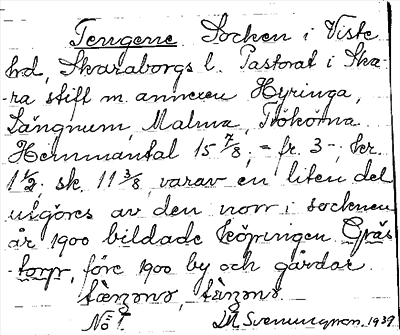 Tengene Socken i Viste
hrd, Skaraborgs l. Pastorat i Ska-
-ra stift m annexen Hyringa,
Längnum, Malma, Trökörna.
Hemmantal 15 7/8, = fr. 3-, kr.
1 1/2. sk. 11 3/8, varav en liten del
utgöres av den norr i socknen
år 1900 bildade köpingen Gräs
-torp, före 1900 by och gårdar.
No 1. D.A. Svenungson. 1939